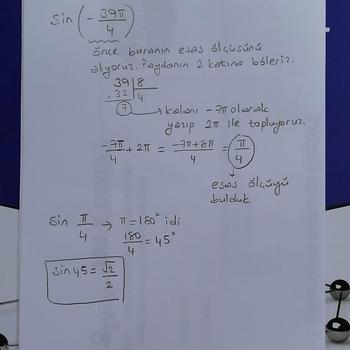 sin(-39π/4)
önce buranın esas ölçüsünü
alıyoruz. Paydanın 2 katına böleriz.
39 | 8
-32 | 4
7 → kalanı -7π olarak
yazıp 2π ile topluyoruz.
-7π/4 + 2π = -7π+8π/4 = π/4
esas ölçüyü
bulduk
sin π/4 → π = 180° idi
180/4 = 45°
sin 45 = √2/2